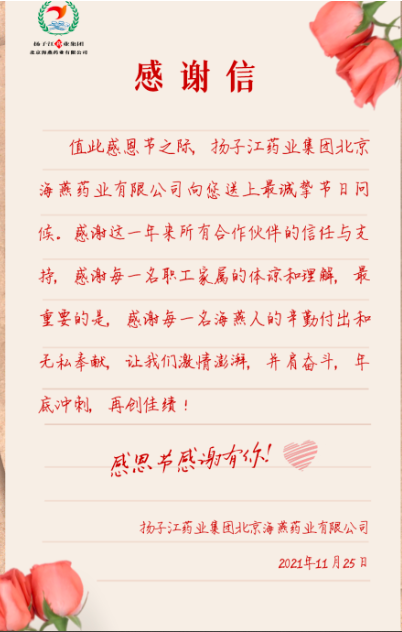 扬子江药业集团
北京海燕药业有限公司
感谢信
值此感恩节之际，扬子江药业集团北京
海燕药业有限公司向您送上最诚挚节日问
候。感谢这一年来所有合作伙伴的信任与支
持，感谢每一名职工家属的体谅和理解，最
重要的是，感谢每一名海燕人的辛勤付出和
无私奉献，让我们激情澎湃，并肩奋斗，年
底冲刺，再创佳绩！
感恩节感谢有你！
扬子江药业集团北京海燕药业有限公司
2021年11月25日